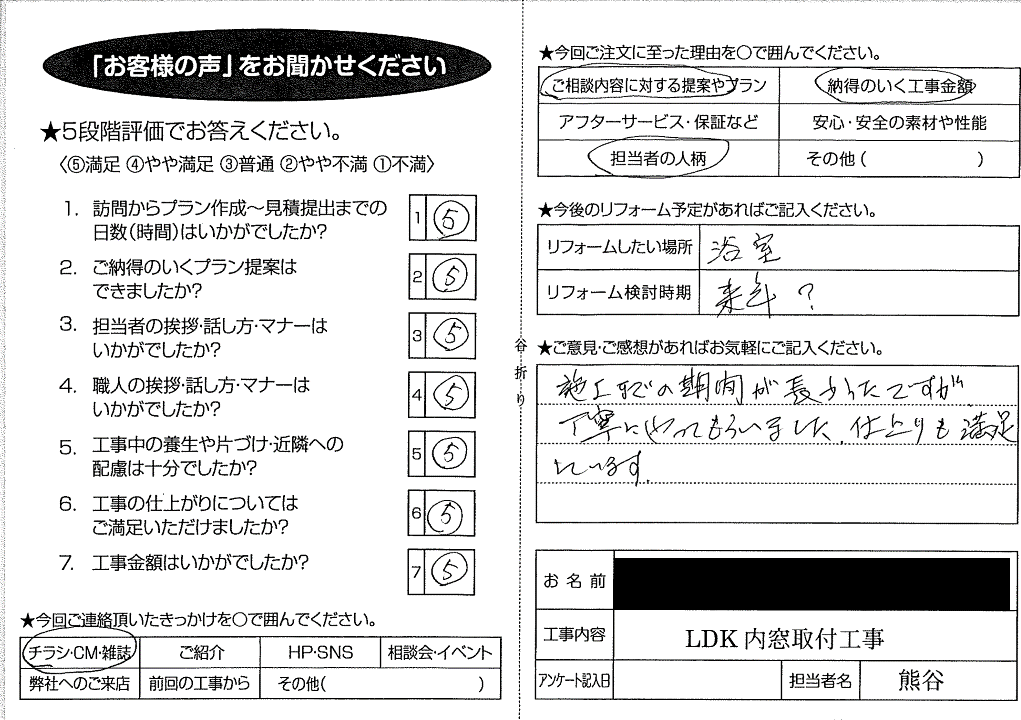 「お客様の声」をお聞かせください
★5段階評価でお答えください。
〈⑤満足 ④やや満足 ③普通 ②やや不満 ①不満〉
1. 訪問からプラン作成～見積提出までの
日数(時間)はいかがでしたか?
1 ⑤
2. ご納得のいくプラン提案は
できましたか?
2 ⑤
3. 担当者の挨拶・話し方・マナーは
いかがでしたか?
3 ⑤
4. 職人の挨拶・話し方・マナーは
いかがでしたか?
4 ⑤
5. 工事中の養生や片づけ・近隣への
配慮は十分でしたか?
5 ⑤
6. 工事の仕上がりについては
ご満足いただけましたか?
6 ⑤
7. 工事金額はいかがでしたか?
7 ⑤
★今回ご連絡頂いたきっかけを○で囲んでください。
チラシ・CM・雑誌 ご紹介 HP・SNS 相談会・イベント
弊社へのご来店 前回の工事から その他( )
谷折り
★今回ご注文に至った理由を○で囲んでください。
ご相談内容に対する提案やプラン 納得のいく工事金額
アフターサービス・保証など 安心・安全の素材や性能
担当者の人柄 その他( )
★今後のリフォーム予定があればご記入ください。
リフォームしたい場所 浴室
リフォーム検討時期 来年?
★ご意見・ご感想があればお気軽にご記入ください。
施工までの期間が長かったですが
丁寧にやってもらいました。仕上りも満足
しています。
お名前
工事内容 LDK内窓取付工事
アンケート記入日 担当者名 熊谷